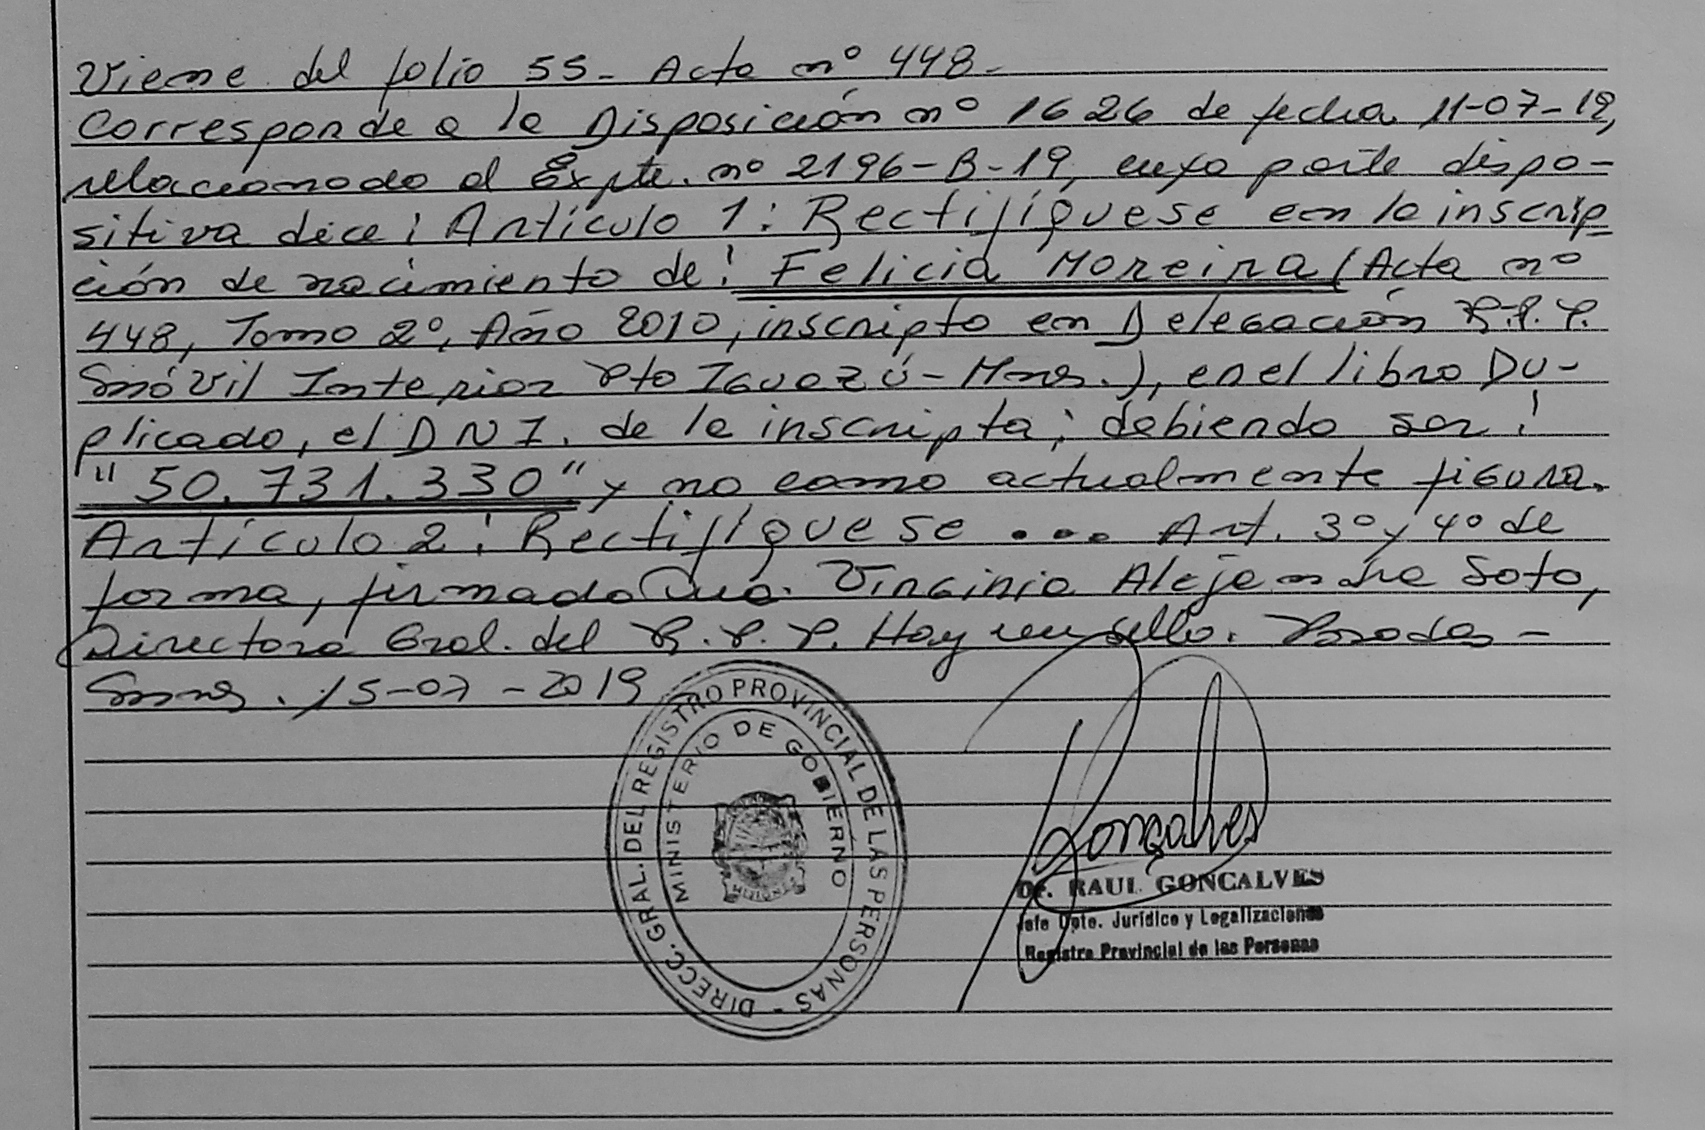 Viene del folio 55- Acta nº 448-
Corresponde a la Disposición nº 1626 de fecha 11-07-19,
relacionado al Expte. nº 2196-B-19, cuya parte dispo-
sitiva dice: Artículo 1: Rectifíquese en la inscrip
ción de nacimiento de: Felicia Moreira (Acta nº
448, Tomo 2º, Año 2010, inscripta en Delegación R.P.P.
Móvil Interior Pto Iguazú-Mnes.), en el libro Du-
plicado, el DNI. de la inscripta; debiendo ser:
"50.731.330" y no como actualmente figura.
Artículo 2: Rectifíquese ... Art. 3º y 4º de
forma, firmado Dra. Virginia Alejandra Soto,
Directora Gral. del R.P.P. Hay un sello. Posadas-
Mnes. 15-07-2019
DIRECC. GRAL. DEL REGISTRO PROVINCIAL DE LAS PERSONAS -
MINISTERIO DE GOBIERNO
MISIONES
Gonçalves
Dr. RAUL GONCALVES
Jefe Dpto. Jurídico y Legalizaciones
Registro Provincial de las Personas